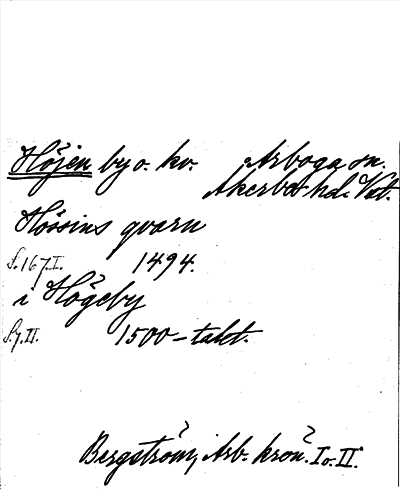 Höjen by o. kv. Arboga sn.
Åkerbo hd. Vst.
Hössins qvarn
S. 167. I. 1494.
i Högeby
S. 7. II. 1500-talet.
Bergström, Arb. krön. I o. II.